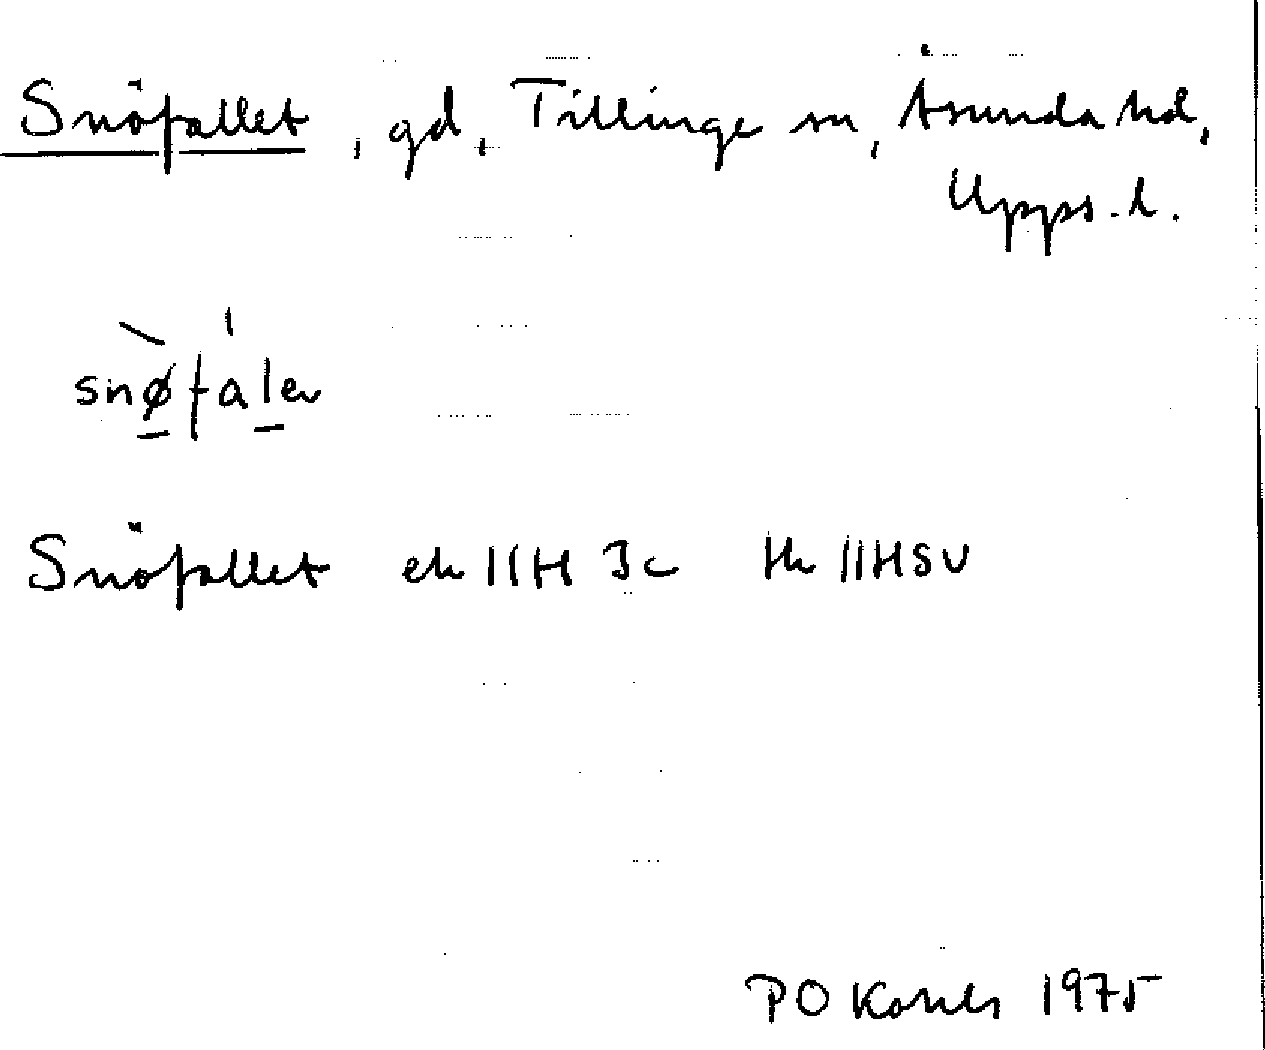 Snöfallet, gd, Tillinge sn, Åsunda hd,
Upps. l.
snøfalev
Snöfallet ek 11H 3c Hk 11HSV
PO 1975